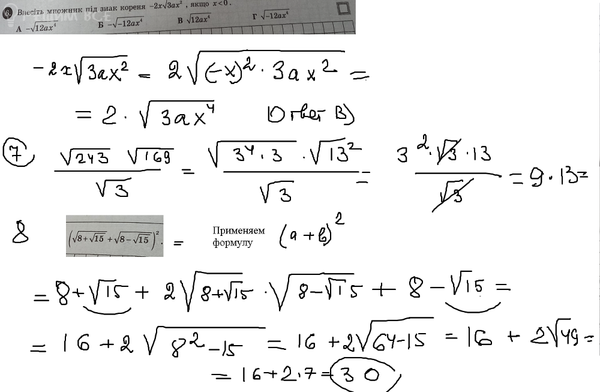 Внесіть множник під знак кореня -2x√3ax², якщо x<0.
А -√12ax⁴ Б -√-12ax⁴ В √12ax⁴ Г √-12ax⁴
-2x√3ax² = 2√(-x)² · 3ax² =
= 2 · √3ax⁴ Ответ В)
7 √243 √169 / √3 = √3⁴·3 · √13² / √3 = 3²·√3·13 / √3 = 9·13=
8 (√8+√15 + √8-√15)². = Применяем формулу (a+b)²
= 8+√15 + 2√8+√15 · √8-√15 + 8-√15 =
= 16+2√8²-15 = 16+2√64-15 = 16 + 2√49 =
= 16+2·7=30